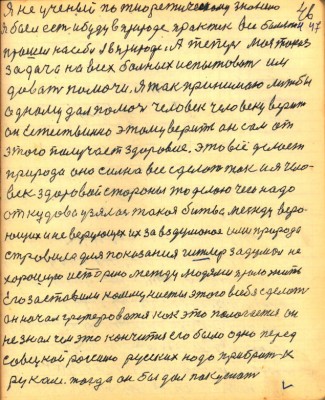 Я не ученый по тиоретическому знанию 46
я был есть и буду в природе практик все болезни 47
пришли на себя я в природе. А теперь моя такая
задача на всех больных испытовать им
довать помочи. я так принимаю любы
одному дал помоч человек человеку верит
он естествинно этому верит он сам от
этого получает здоровие. Это всё делает
природа оно сильна все сделать так и я чело-
век здоровой стороны то делаю чего надо
откудова узялас такая битва между веро-
ющих и не верующех их задуманое или природа
стровила для показания гитлер задумал не
хорошую историю между людями проложить
Его заставили коммунисты этого в себе сделать
он начал групероватся как это пологается он
не знал чем это кончится его было одно перед
совецкой россию русских надо прибрать к
рукам. тогда он бы дал покушать